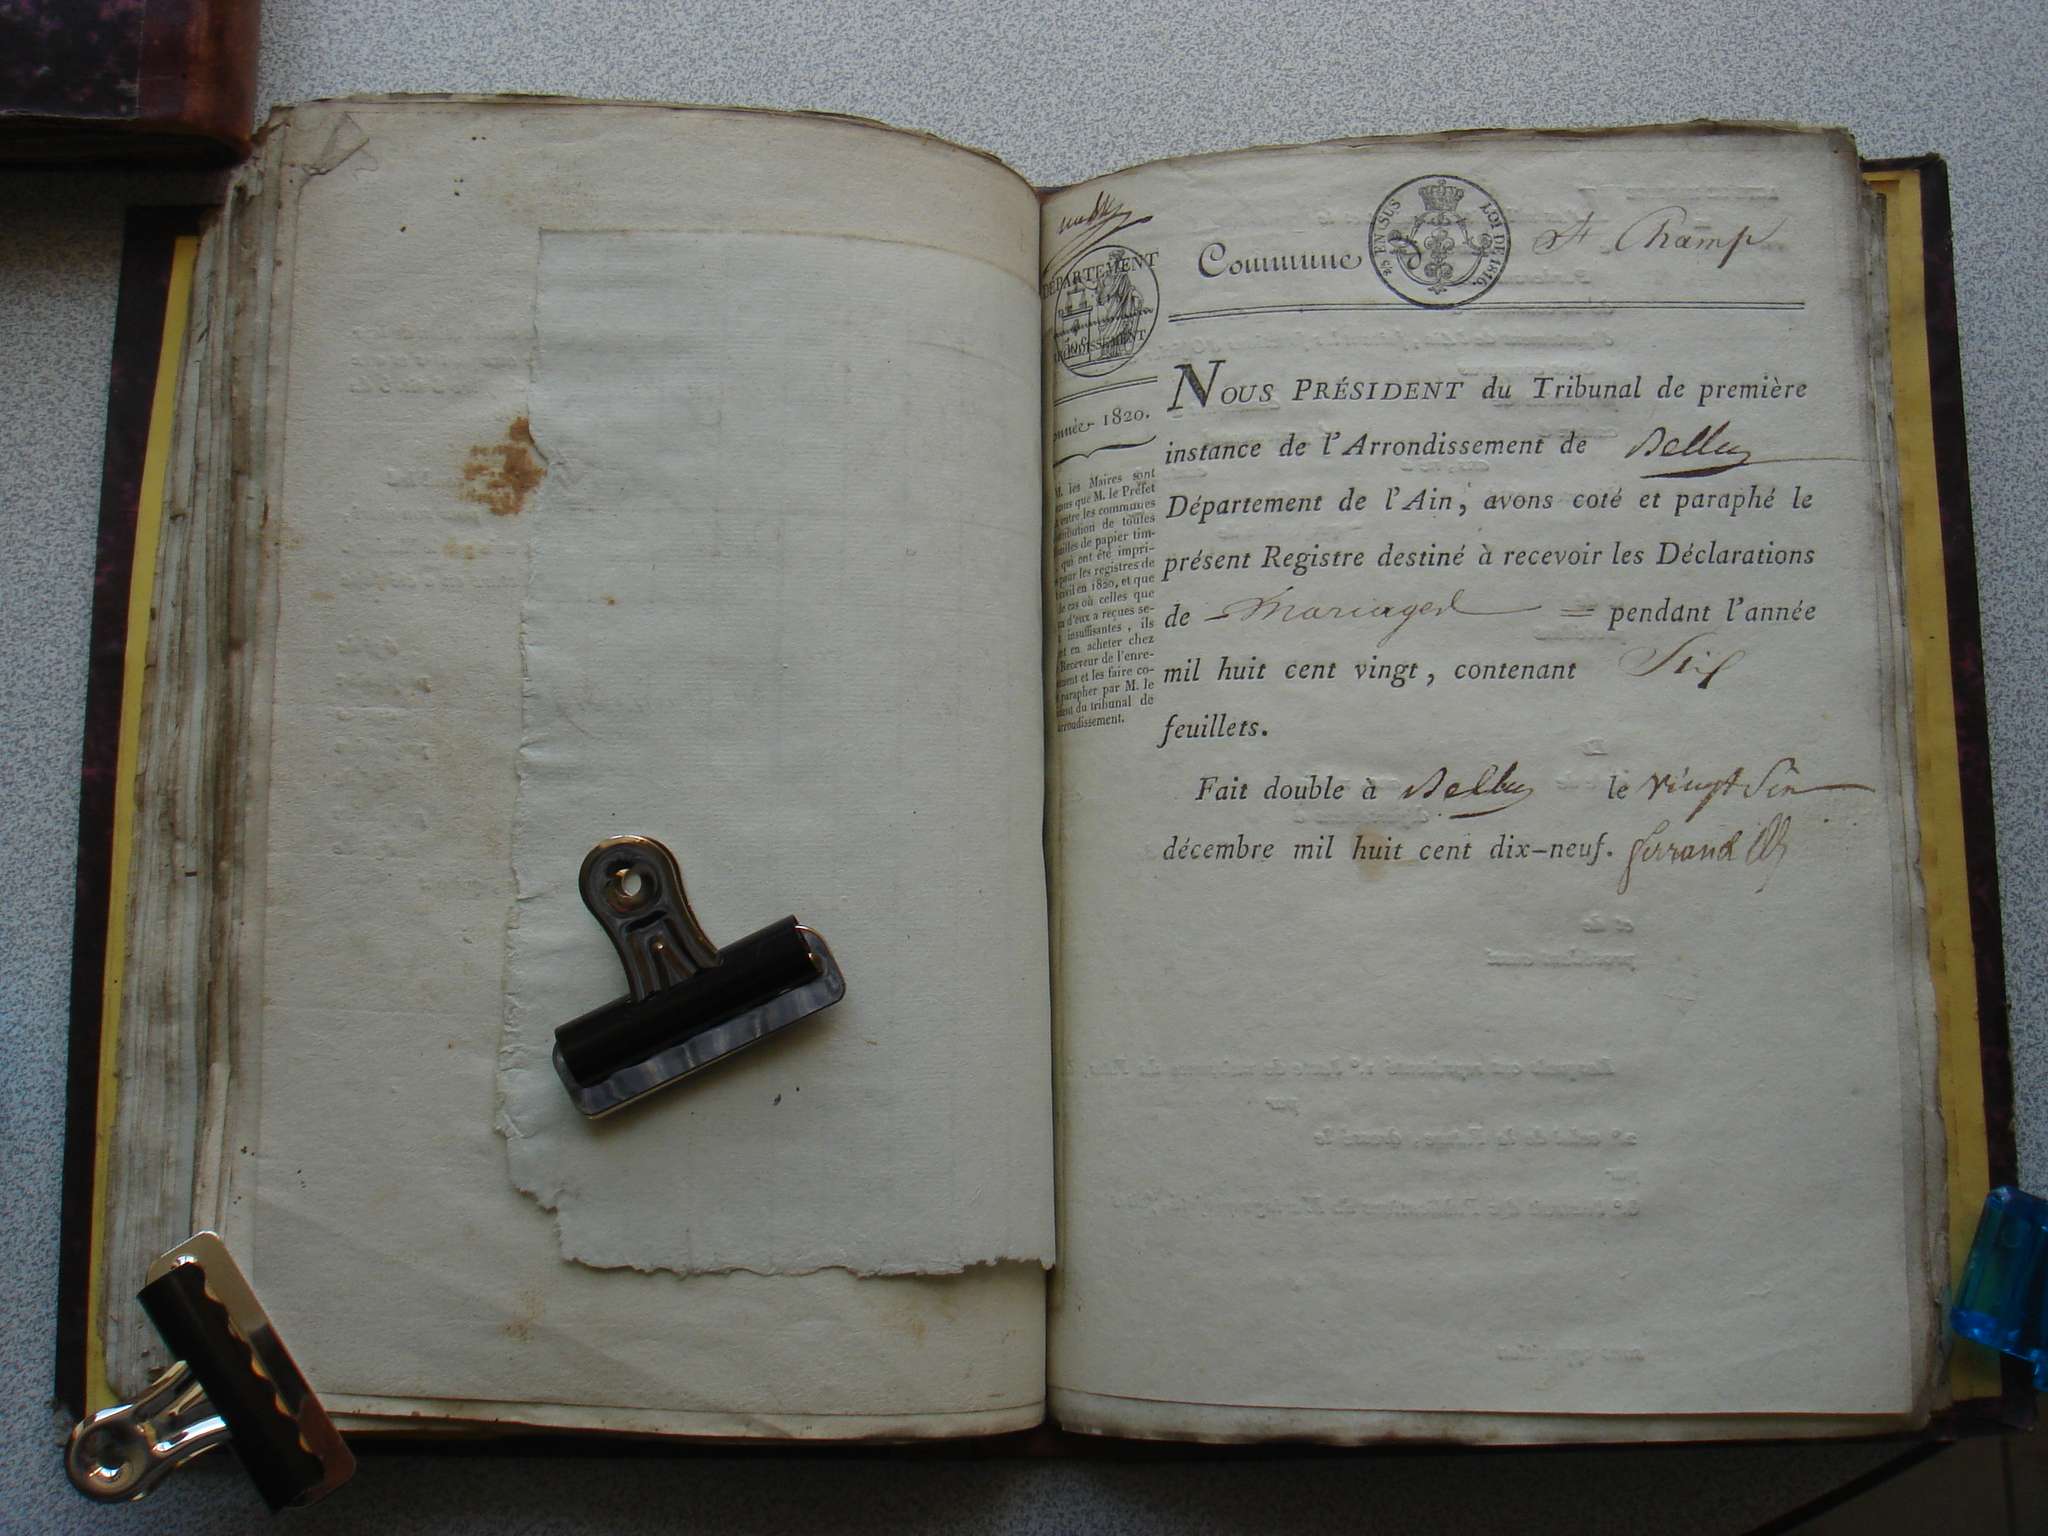 DÉPARTEMENT
DE
ARRONDISSEMENT
Année 1820.
M. les Maires sont
que M. le Préfet
entre les communes
de toutes
de papier tim-
qui ont été impri-
pour les registres de
civil en 1820, et que
cas où celles que
d'eux a reçues se-
insuffisantes, ils
en acheter chez
Receveur de l'enre-
et les faire co-
parapher par M. le
du tribunal de
arrondissement.
Commune d St Champ
25 EN SUS LOI DE 1816.
NOUS PRÉSIDENT du Tribunal de première
instance de l'Arrondissement de Belley
Département de l'Ain, avons coté et paraphé le
présent Registre destiné à recevoir les Déclarations
de Mariages = pendant l'année
mil huit cent vingt, contenant Six
feuillets.
Fait double à Belley le vingt Six
décembre mil huit cent dix-neuf. Ferrand